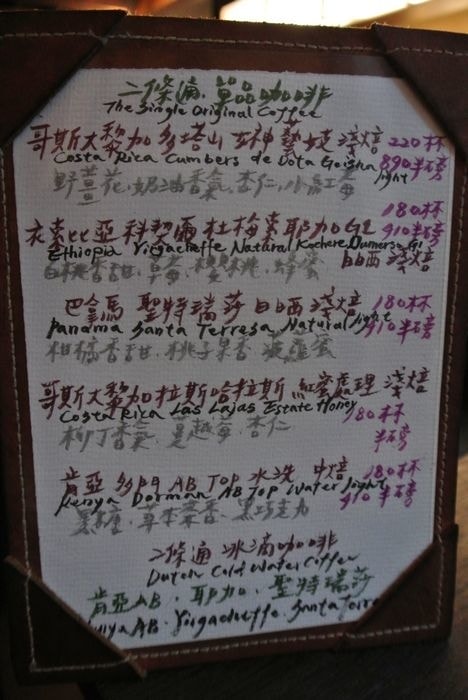 二條通.單品咖啡
The Single Original Coffee
哥斯大黎加多塔山女神藝妓淺焙 220杯
Costa Rica Cumbers de Dota Geisha light 890半磅
野薑花.奶油香氣.杏仁.小紅莓
衣索比亞科契爾杜梅索耶加G1 180杯
Ethiopia Yirgacheffe Natural Kochere Dumerso G1 910半磅
白桃香甜.草莓.櫻桃.蜂蜜 日曬淺焙
巴拿馬 聖特瑞莎日曬淺焙 180杯
Panama Santa Terresa Natural light 910半磅
柑橘香甜.桃子果香 波蘿蜜
哥斯大黎加拉斯哈拉斯 紅蜜處理 淺焙
Costa Rica Las Lajas Estate Honey 180杯
柳丁香氣.蔓越莓.杏仁 半磅
肯亞多門AB TOP水洗 中焙 180杯
Kenya Dorman AB TOP Water light 910半磅
黑糖.草本葉香.黑巧克力
二條通 冰滴咖啡
Dutch Cold Water Coffee
肯亞AB.耶加.聖特瑞莎
AB. Yirgacheffe. Santa